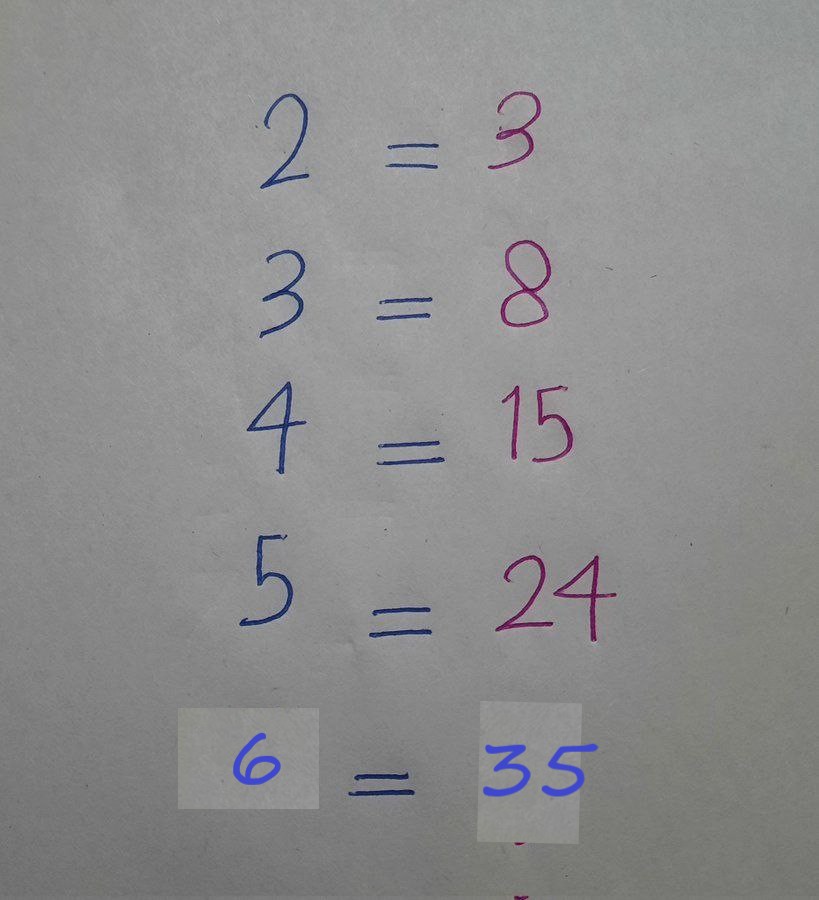 2 = 3
3 = 8
4 = 15
5 = 24
6 = 35